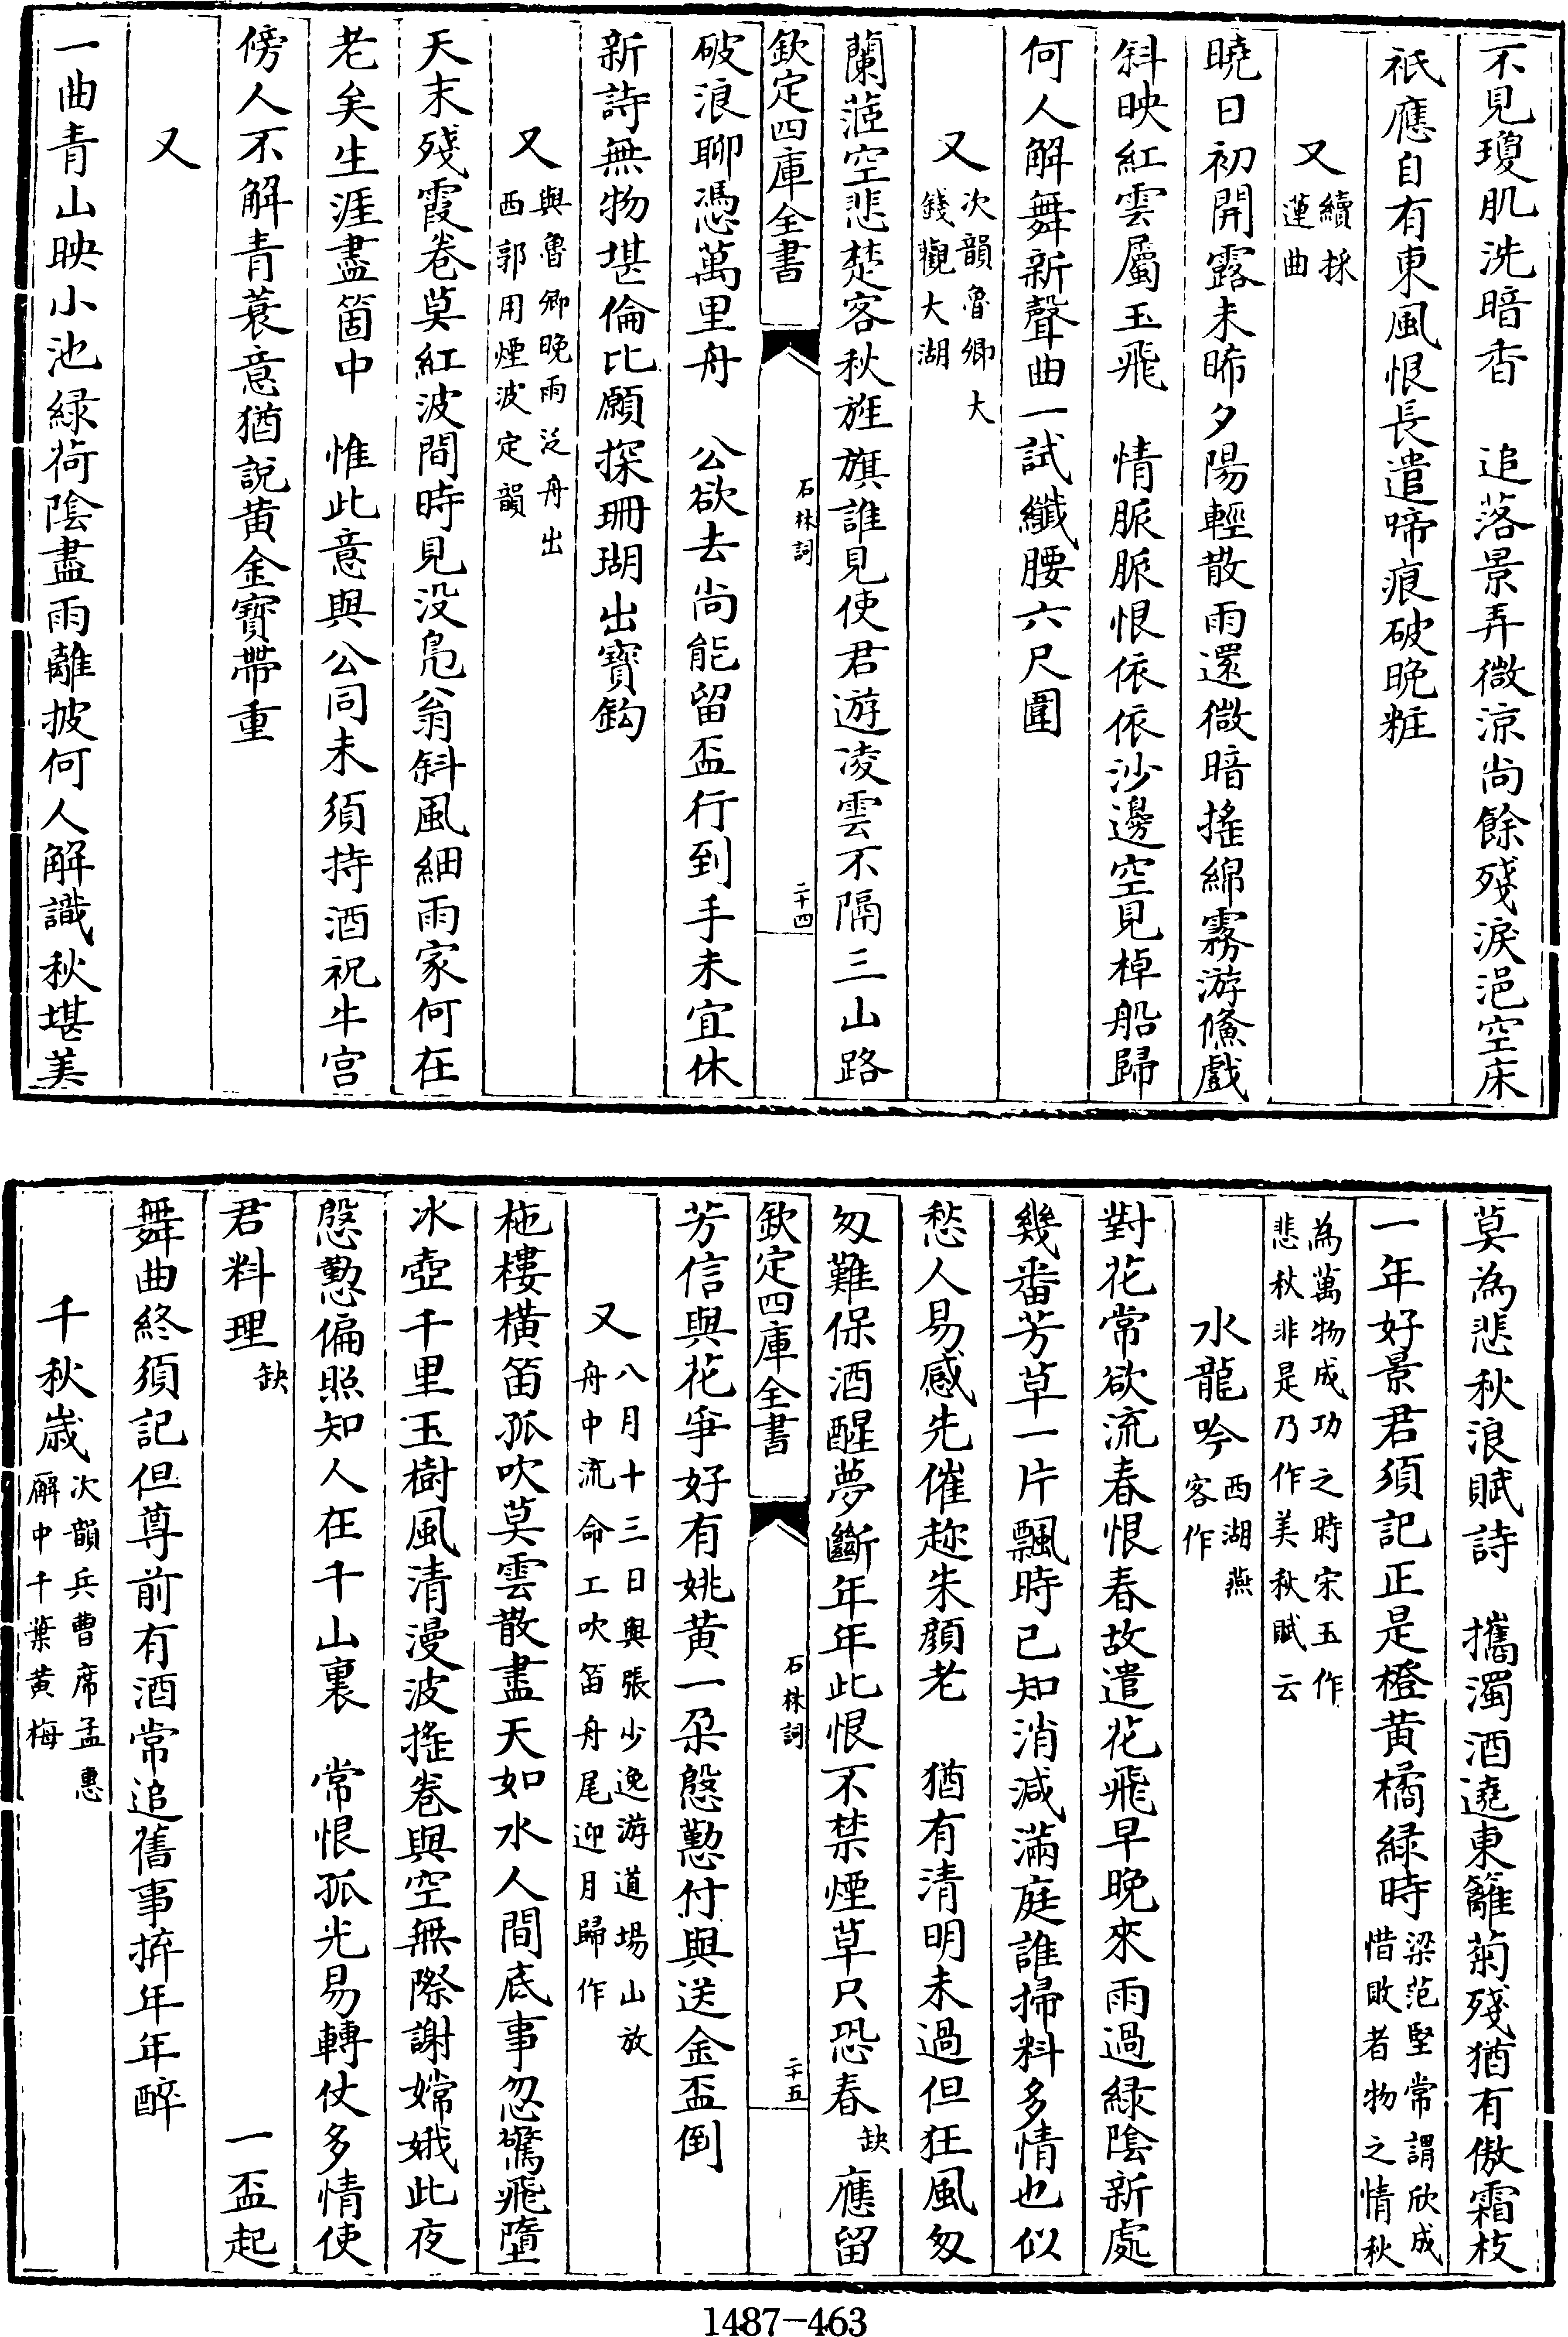 不見瓊肌洗暗香　追落景弄微涼尚餘殘淚浥空床
祇應自有東風恨長遣啼痕破晚粧
又續採蓮曲
曉日初開露未晞夕陽輕散雨還微暗搖綿霧游鯈戲
斜映紅雲屬玉飛　情脈脈恨依依沙邊空見棹船歸
何人解舞新聲曲一試纖腰六尺圍
又次韻魯卿大錢觀大湖
蘭茝空悲楚客秋旌旗誰見使君遊凌雲不隔三山路
欽定四庫全書　石林詞　二十四
破浪聊憑萬里舟　公欲去尚能留盃行到手未宜休
新詩無物堪倫比願探珊瑚出寶鈎
又與魯卿晚雨泛舟出西郭用煙波定韻
天末殘霞卷莫紅波間時見没鳧翁斜風細雨家何在
老矣生涯盡箇中　惟此意與公同未須持酒祝牛宮
傍人不解青蓑意猶說黄金寳帶重
又
一曲青山映小池緑荷陰盡雨離披何人解識秋堪美
莫為悲秋浪賦詩　攜濁酒遶東籬菊殘猶有傲霜枝
一年好景君須記正是橙黄橘緑時梁范堅常謂欣成惜敗者物之情秋
為萬物成功之時宋玉作悲秋非是乃作美秋賦云
水龍吟西湖燕客作
對花常欲流春恨春故遣花飛早晚來雨過緑陰新處
幾番芳草一片飄時已知消減滿庭誰掃料多情也似
愁人易感先催趂朱顏老　猶有清明未過但狂風匆
匆難保酒醒夢斷年年此恨不禁煙草只恐春缺應留
欽定四庫全書　石林詞　二十五
芳信與花爭好有姚黄一朶慇懃付與送金盃倒
又八月十三日與張少逸游道場山放舟中流命工吹笛舟尾迎月歸作
柂樓横笛孤吹莫雲散盡天如水人間底事忽驚飛墮
冰壺千里玉樹風清漫波搖卷與空無際謝嫦娥此夜
慇懃偏照知人在千山裏　常恨孤光易轉仗多情使
君料理缺　一盃起
舞曲終須記但尊前有酒常追舊事拚年年醉
千秋歲次韻兵曹席孟惠廨中千葉黄梅
1487-463